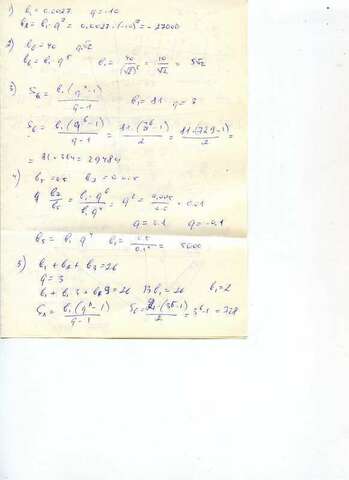 1) b₁ = 0.0027 q = -10
b₈ = b₁·q⁷ = 0.0027·(-10)⁷ = -27000
2) b₆ = 40 q √2
b₆ = b₁·q⁵ b₁ = 40/(√2)⁵ = 10/√2 = 5√2
3) Sₙ = b₁(qⁿ-1)/q-1 b₁ = 81 q = 3
S₆ = b₁(q⁶-1)/q-1 = 81·(3⁶-1)/2 = 81·(729-1)/2 =
= 81·364 = 29484
4) b₅ = 0.5 b₇ = 0.005
q b₇/b₅ = b₁·q⁶/b₁q⁴ = q² = 0.005/0.5 = 0.01
q = 0.1 q = -0.1
b₅ = b₁ q⁴ b₁ = 0.5/0.1⁴ = 5000
5) b₁ + b₂ + b₃ = 26
q = 3
b₁ + b₁ 3 + b₁ 9 = 26 13b₁ = 26 b₁ = 2
Sₙ = b₁(qⁿ-1)/q-1 S₆ = 2·(3⁶-1)/2 = 3⁶-1 = 728